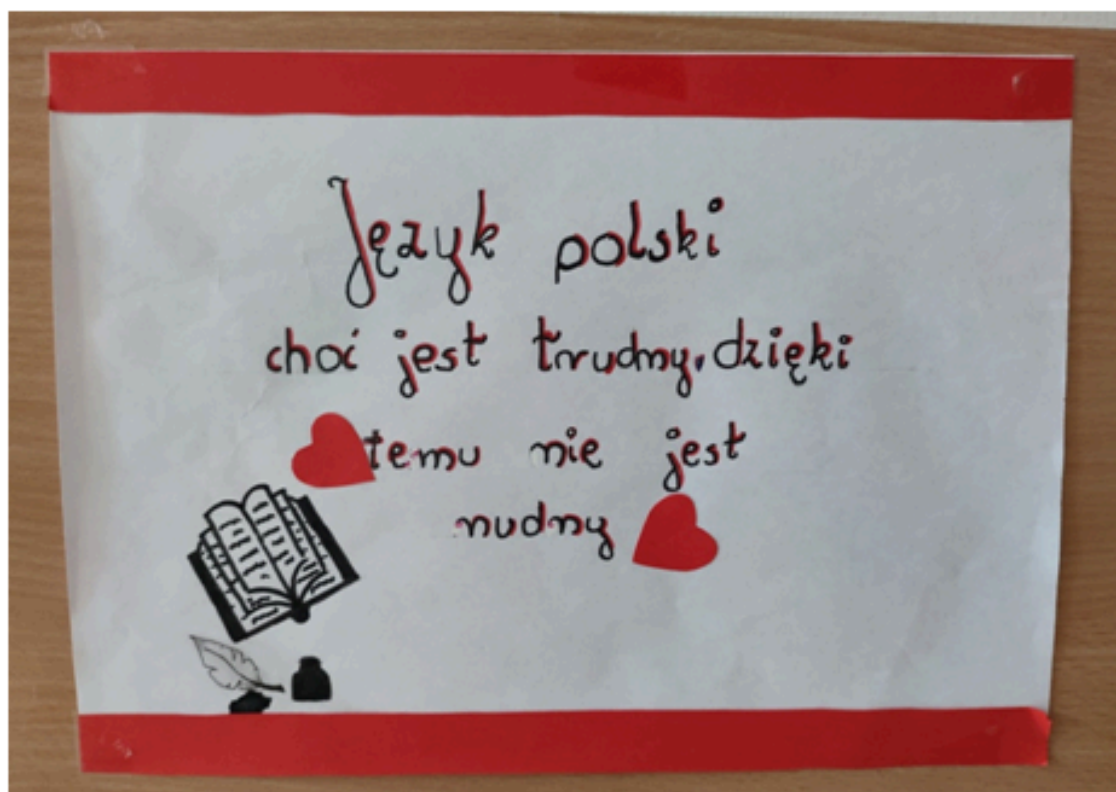 Język polski
choć jest trudny, dzięki
temu nie jest
nudny